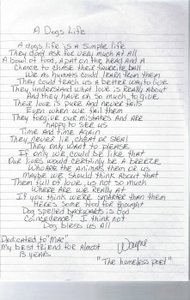 A Dogs Life
A dogs life is a simple life
They dont ask for very much at all
A bowl of food, a pat on the head and a
chance to chase their favorite ball
We as humans could learn from them
They could teach us a better way to live
They understand what love is really about
And they have so much to give
Their love is pure and never fails
Even when we fail them
They forgive our mistakes and are
happy to see us
Time and time again
They never lie, cheat or steal
They only want to please
If only we could be like that
Our lives would certainly be a breeze
Who are the animals them or us
Maybe we should think about that
Them full of love, us not so much
Where are we really at
If you think were smarter than them
Here's some food for thought
Dog spelled backwards is God
Coincidence? I think not
Dog bless us all
Dedicated to "Mac"
My best friend for almost
13 years
Wayne
"The homeless poet"